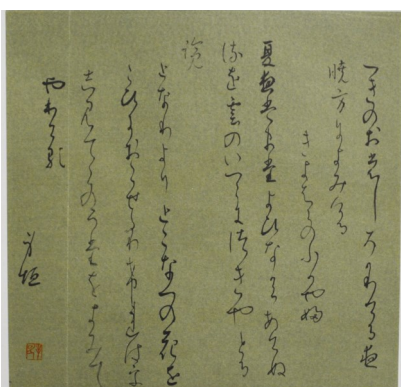 つきのおもしろかりける夜
暁方によみける
きよはらのふかや婦
夏夜はま堂よひなからあけぬ
るを雲のいつこにつきやとる
覧
となりよりとこなつの花を
こひにおこせたりけれは
しみてこのうたをよみて